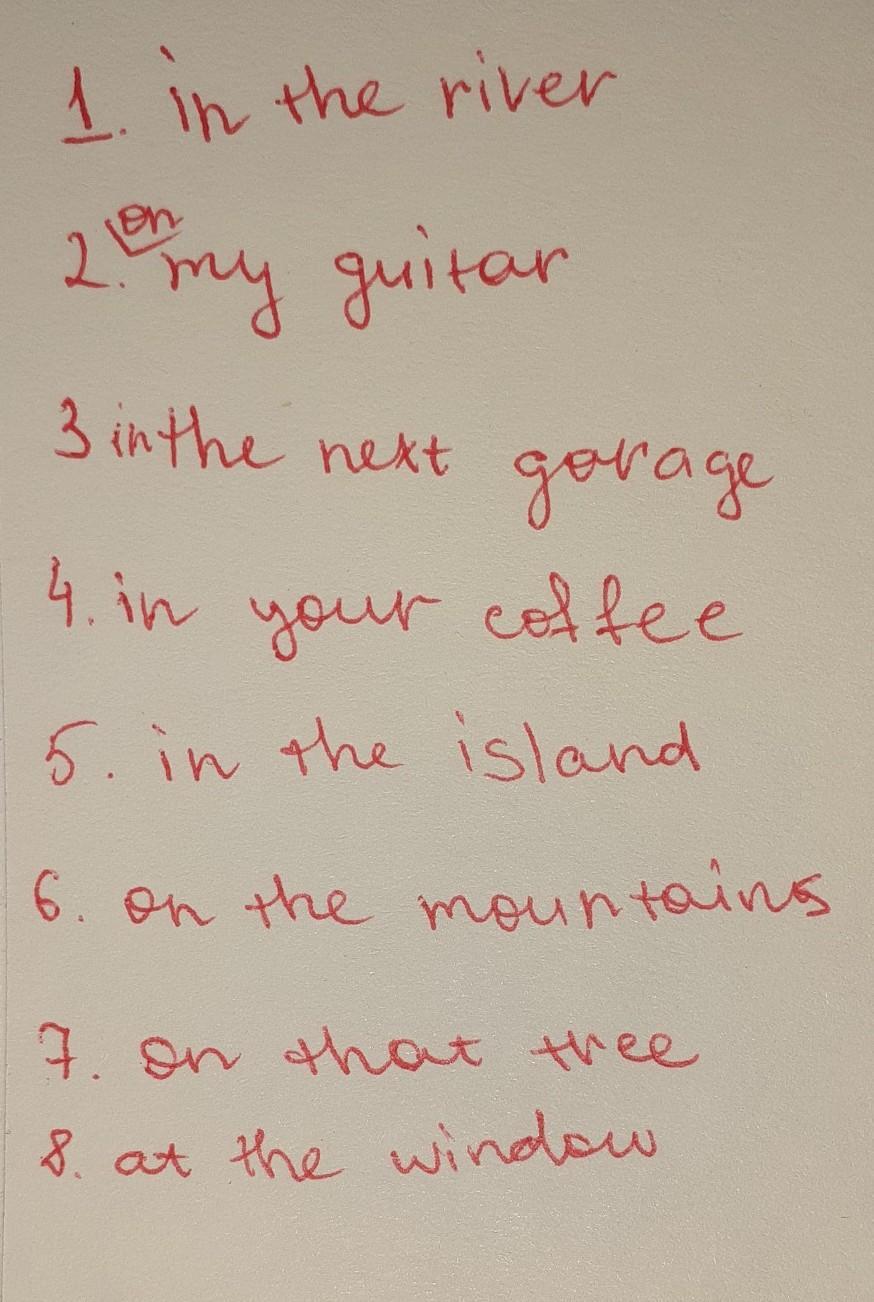 1. in the river
2. on my guitar
3 in the next gorage
4. in your coffee
5. in the island
6. on the mountains
7. on that tree
8. at the window